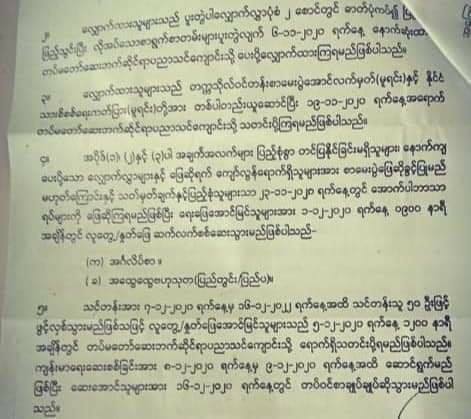 ၂။ လျှောက်ထားသူများသည် ပူးတွဲပါလျှောက်လွှာပုံစံ ၂ စောင်တွင် ဓာတ်ပုံကပ်၍
ဖြည့်သွင်းပြီး လိုအပ်သောစာရွက်စာတမ်းများပူးတွဲလျက် ၆-၁၁-၂၀၂၀ ရက်နေ့ နောက်ဆုံးထား
တပ်မတော်ဆေးဘက်ဆိုင်ရာပညာသင်ကျောင်းသို့ ပေးပို့လျှောက်ထားကြရမည်ဖြစ်ပါသည်။
၃။ လျှောက်ထားသူများသည် တက္ကသိုလ်ဝင်တန်းစာမေးပွဲအောင်လက်မှတ်(မူရင်း)နှင့် နိုင်ငံ
သားစိစစ်ရေးကတ်ပြား(မူရင်း)တို့အား တစ်ပါတည်းယူဆောင်ပြီး ၁၉-၁၁-၂၀၂၀ ရက်နေ့အရောက်
တပ်မတော်ဆေးဘက်ဆိုင်ရာပညာသင်ကျောင်းသို့ သတင်းပို့ကြရမည်ဖြစ်ပါသည်။
၄။ အပိုဒ်(၁) (၂)နှင့် (၃)ပါ အချက်အလက်များ ပြည့်စုံစွာ တင်ပြနိုင်ခြင်းမရှိသူများ၊ နောက်ကျ
ပေးပို့သော လျှောက်လွှာများနှင့် ဖြေဆိုရက် ကျော်လွန်ရောက်ရှိသူများအား စာမေးပွဲဖြေဆိုခွင့်ပြုမည်
မဟုတ်ကြောင်းနှင့် သတ်မှတ်ချက်နှင့်ပြည့်စုံသူများသာ ၂၃-၁၁-၂၀၂၀ ရက်နေ့တွင် အောက်ပါဘာသာ
ရပ်များကို ဖြေဆိုကြရမည်ဖြစ်ပြီး ရေးဖြေအောင်မြင်သူများအား ၁-၁၂-၂၀၂၀ ရက်နေ့ ၀၉၀၀ နာရီ
အချိန်တွင် လူတွေ့/နှုတ်ဖြေ ဆက်လက်စစ်ဆေးသွားမည်ဖြစ်ပါသည်-
(က) အင်္ဂလိပ်စာ ။
(ခ) အထွေထွေဗဟုသုတ(ပြည်တွင်း/ပြည်ပ)။
၅။ သင်တန်းအား ၇-၁၂-၂၀၂၀ ရက်နေ့မှ ၁၆-၁၂-၂၀၂၂ ရက်နေ့အထိ သင်တန်းသူ ၅၀ ဦးဖြင့်
ဖွင့်လှစ်သွားမည်ဖြစ်သဖြင့် လူတွေ့/နှုတ်ဖြေအောင်မြင်သူများသည် ၅-၁၂-၂၀၂၀ ရက်နေ့ ၁၂၀၀ နာရီ
အချိန်တွင် တပ်မတော်ဆေးဘက်ဆိုင်ရာပညာသင်ကျောင်းသို့ ရောက်ရှိသတင်းပို့ရမည်ဖြစ်ပါသည်။
ကျန်းမာရေးဆေးစစ်ခြင်းအား ၈-၁၂-၂၀၂၀ ရက်နေ့မှ ၉-၁၂-၂၀၂၀ ရက်နေ့အထိ ဆောင်ရွက်မည်
ဖြစ်ပြီး ဆေးအောင်သူများအား ၁၆-၁၂-၂၀၂၀ ရက်နေ့တွင် တပ်ဝင်စာချုပ်ချုပ်ဆိုသွားမည်ဖြစ်ပါ
သည်။